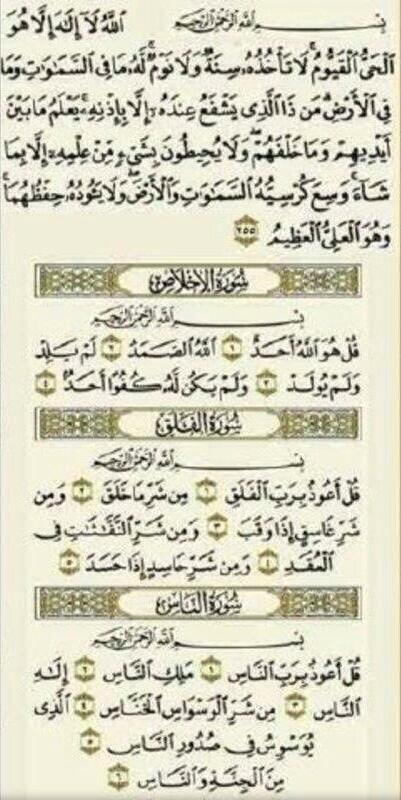 بِسْمِ اللَّهِ الرَّحْمَٰنِ الرَّحِيمِ اللَّهُ لَا إِلَٰهَ إِلَّا هُوَ
الْحَيُّ الْقَيُّومُ ۚ لَا تَأْخُذُهُ سِنَةٌ وَلَا نَوْمٌ ۚ لَهُ مَا فِي السَّمَاوَاتِ وَمَا
فِي الْأَرْضِ ۗ مَن ذَا الَّذِي يَشْفَعُ عِندَهُ إِلَّا بِإِذْنِهِ ۚ يَعْلَمُ مَا بَيْنَ
أَيْدِيهِمْ وَمَا خَلْفَهُمْ ۖ وَلَا يُحِيطُونَ بِشَيْءٍ مِّنْ عِلْمِهِ إِلَّا بِمَا
شَاءَ ۚ وَسِعَ كُرْسِيُّهُ السَّمَاوَاتِ وَالْأَرْضَ ۖ وَلَا يَئُودُهُ حِفْظُهُمَا ۚ
وَهُوَ الْعَلِيُّ الْعَظِيمُ ٢٥٥
سُورَةُ الْإِخْلَاصِ
بِسْمِ اللَّهِ الرَّحْمَٰنِ الرَّحِيمِ
قُلْ هُوَ اللَّهُ أَحَدٌ ١ اللَّهُ الصَّمَدُ ٢ لَمْ يَلِدْ
وَلَمْ يُولَدْ ٣ وَلَمْ يَكُن لَّهُ كُفُوًا أَحَدٌ ٤
سُورَةُ الْفَلَقِ
بِسْمِ اللَّهِ الرَّحْمَٰنِ الرَّحِيمِ
قُلْ أَعُوذُ بِرَبِّ الْفَلَقِ ١ مِن شَرِّ مَا خَلَقَ ٢ وَمِن
شَرِّ غَاسِقٍ إِذَا وَقَبَ ٣ وَمِن شَرِّ النَّفَّاثَاتِ فِي
الْعُقَدِ ٤ وَمِن شَرِّ حَاسِدٍ إِذَا حَسَدَ ٥
سُورَةُ النَّاسِ
بِسْمِ اللَّهِ الرَّحْمَٰنِ الرَّحِيمِ
قُلْ أَعُوذُ بِرَبِّ النَّاسِ ١ مَلِكِ النَّاسِ ٢ إِلَٰهِ
النَّاسِ ٣ مِن شَرِّ الْوَسْوَاسِ الْخَنَّاسِ ٤ الَّذِي
يُوَسْوِسُ فِي صُدُورِ النَّاسِ ٥
مِنَ الْجِنَّةِ وَالنَّاسِ ٦